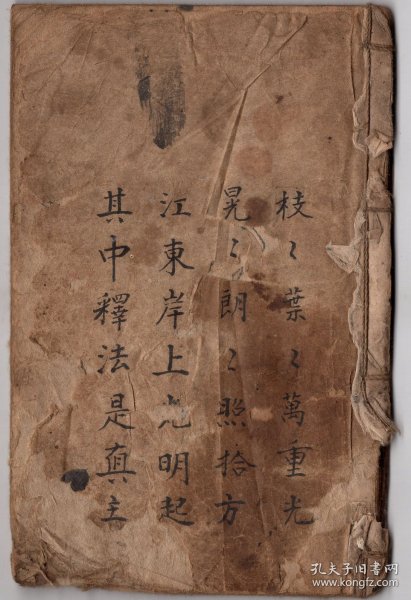 枝〻葉〻萬重光
晃〻朗〻照拾方
江東岸上光明起
其中釋法是真主
孔夫子旧书网
www.kongfz.com